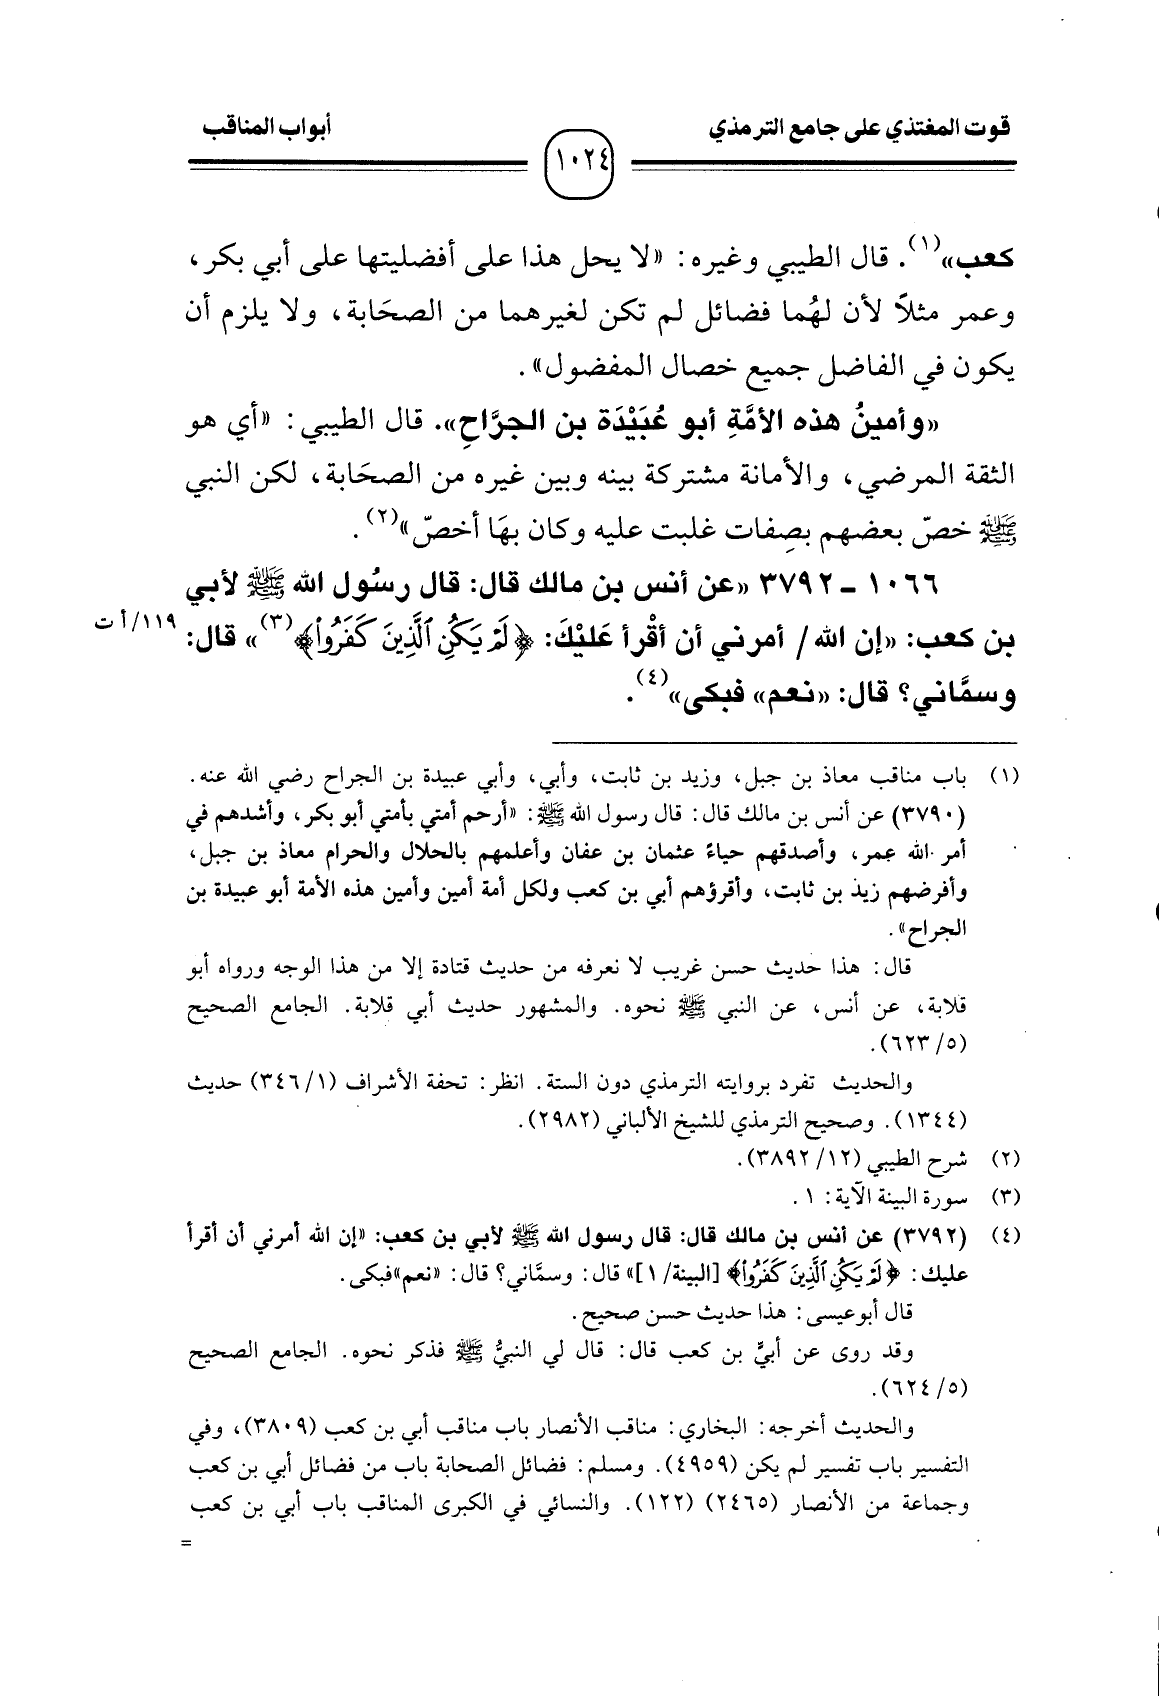 قوت المغتذي على جامع الترمذي
١٠٢٤
أبواب المناقب
كعب»(١). قال الطيبي وغيره: «لا يحل هذا على أفضليتها على أبي بكر،
وعمر مثلاً لأن لهُما فضائل لم تكن لغيرهما من الصحَابة، ولا يلزم أن
يكون في الفاضل جميع خصال المفضول».
«وأمينُ هذه الأمَّةِ أبو عُبَيْدَة بن الجرَّاحِ». قال الطيبي: «أي هو
الثقة المرضي، والأمانة مشتركة بينه وبين غيره من الصحَابة، لكن النبي
ﷺ خصّ بعضهم بصِفات غلبت عليه وكان بهَا أخصّ»(٢).
١٠٦٦ ـ ٣٧٩٢ «عن أنس بن مالك قال: قال رسُول الله ﷺ لأبي
بن كعب: «إن الله/ أمرني أن أقْرأ عَليْكَ: ﴿لَمْ يَكُنِ ٱلَّذِينَ كَفَرُواْ﴾(٣)» قال:
١١٩/أ ت
وسمَّاني؟ قال: «نعم» فبكى»(٤).
(١) باب مناقب معاذ بن جبل، وزيد بن ثابت، وأبي، وأبي عبيدة بن الجراح رضي الله عنه.
(٣٧٩٠) عن أنس بن مالك قال: قال رسول الله ﷺ: «أرحم أمتي بأمتي أبو بكر، وأشدهم في
أمر الله عمر، وأصدقهم حياءً عثمان بن عفان وأعلمهم بالحلال والحرام معاذ بن جبل،
وأفرضهم زيد بن ثابت، وأقرؤهم أبي بن كعب ولكل أمة أمين وأمين هذه الأمة أبو عبيدة بن
الجراح».
قال: هذا حديث حسن غريب لا نعرفه من حديث قتادة إلا من هذا الوجه ورواه أبو
قلابة، عن أنس، عن النبي ﷺ نحوه. والمشهور حديث أبي قلابة. الجامع الصحيح
(٥/ ٦٢٣).
والحديث تفرد بروايته الترمذي دون الستة. انظر: تحفة الأشراف (١/ ٣٤٦) حديث
(١٣٤٤). وصحيح الترمذي للشيخ الألباني (٢٩٨٢).
(٢) شرح الطيبي (١٢/ ٣٨٩٢).
(٣) سورة البينة الآية: ١.
(٤) (٣٧٩٢) عن أنس بن مالك قال: قال رسول الله ﷺ لأبي بن كعب: «إن الله أمرني أن أقرأ
عليك: ﴿لَمْ يَكُنِ ٱلَّذِينَ كَفَرُواْ﴾ [البينة/ ١]» قال: وسمَّاني؟ قال: «نعم»فبكى.
قال أبوعيسى: هذا حديث حسن صحيح.
وقد روى عن أبيِّ بن كعب قال: قال لي النبيُّ ﷺ فذكر نحوه. الجامع الصحيح
(٥/ ٦٢٤).
والحديث أخرجه: البخاري: مناقب الأنصار باب مناقب أبي بن كعب (٣٨٠٩)، وفي
التفسير باب تفسير لم يكن (٤٩٥٩). ومسلم: فضائل الصحابة باب من فضائل أبي بن كعب
وجماعة من الأنصار (٢٤٦٥) (١٢٢). والنسائي في الكبرى المناقب باب أبي بن كعب
=